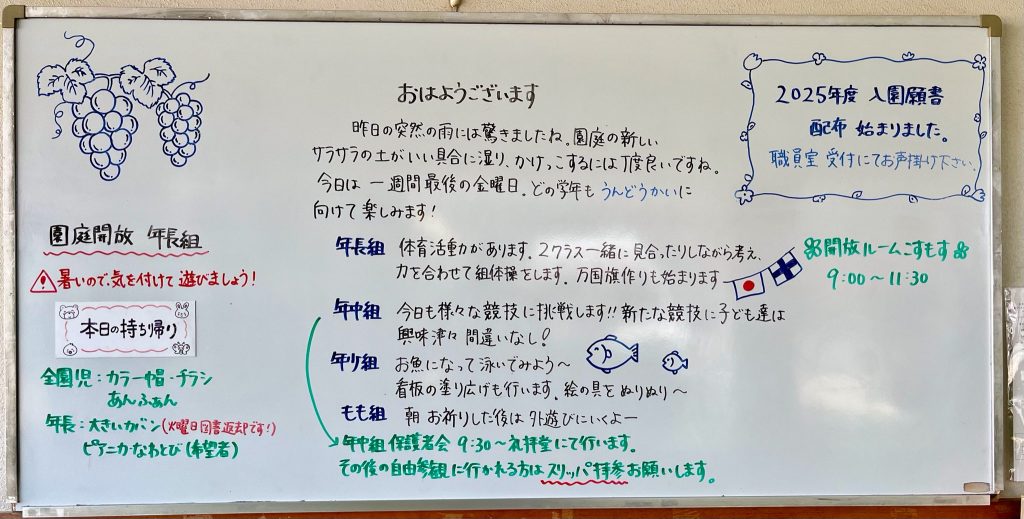 おはようございます
昨日の突然の雨には驚きましたね。園庭の新しい
サラサラの土がいい具合に湿り、かけっこするには丁度良いですね。
今日は 一週間最後の金曜日。どの学年も うんどうかいに
向けて楽しみます!
2025年度 入園願書
配布 始まりました。
職員室 受付にてお声掛け下さい。
園庭開放 年長組
暑いので、気を付けて 遊びましょう!
本日の持ち帰り
全園児:カラー帽・チラシ
あんふぁん
年長:大きいカバン(火曜日図書返却です!)
ピアニカ・なわとび(希望者)
年長組 体育活動があります。2クラス一緒に見合ったりしながら考え、
力を合わせて組体操をします。万国旗作りも始まります
年中組 今日も様々な競技に挑戦します!!新たな競技に子ども達は
興味津々 間違いなし!
年少組 お魚になって泳いでみよう〜
看板の塗り広げも行います。絵の具をぬりぬり〜
もも組 朝 お祈りした後は 外遊びにいくよー
年中組 保護者会 9:30〜礼拝堂にて行います。
その後の自由参観に行かれる方はスリッパ持参お願いします。
開放ルームこすもす
9:00〜11:30